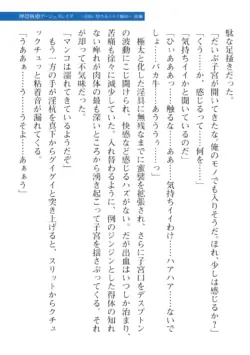 駄な足掻きだった。
「だいぶ子宮が開いてきたな。俺のモノでも入りそうだ。ほれ、少しは感じるか？
気持ちイイかと聞いているのだ」
「くう……か、感じるって……何を……」
「ひぃああぁっ……触るなぁ……気持ちイイわけ……ハアハア……ないで
しょ……バカ牛……あうああぁぁっ！」
極太と化した淫具に無残なまでに蜜襞を拡張され、さらに子宮口をデスプトン
の波動にこじ開けられ、快感など感じるハズがない。だが出血はいつしか治まり、
苦痛も徐々に薄れていた。入れ替わるように、例のジンジンとした得体の知れな
い痺れが肉体の最も深いところから湧き起こって子宮を揺さぶってくる。
「マンコは濡れてきているようだぞ」
もう一方の手が淫杭を真下からグイグイと突き上げると、スリットからクチュ
ックチュっと粘着音が漏れてくる。
「うあああぁ……うそよ……あぁぁう」